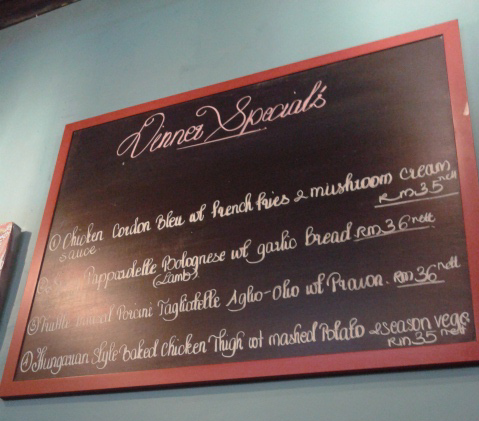 Dinner Special's
① Chicken Cordon Bleu w/ french fries & mushroom cream
sauce RM 35 nett
Pappardelle Bolognese w/ garlic Bread RM 36 nett
(Lamb)
Porcini Tagliatelle Aglio-Olio w/ Prawn. RM 36 nett
④ Hungarian Style Baked Chicken Thigh w/ mashed Potato & season vege
RM 35 nett